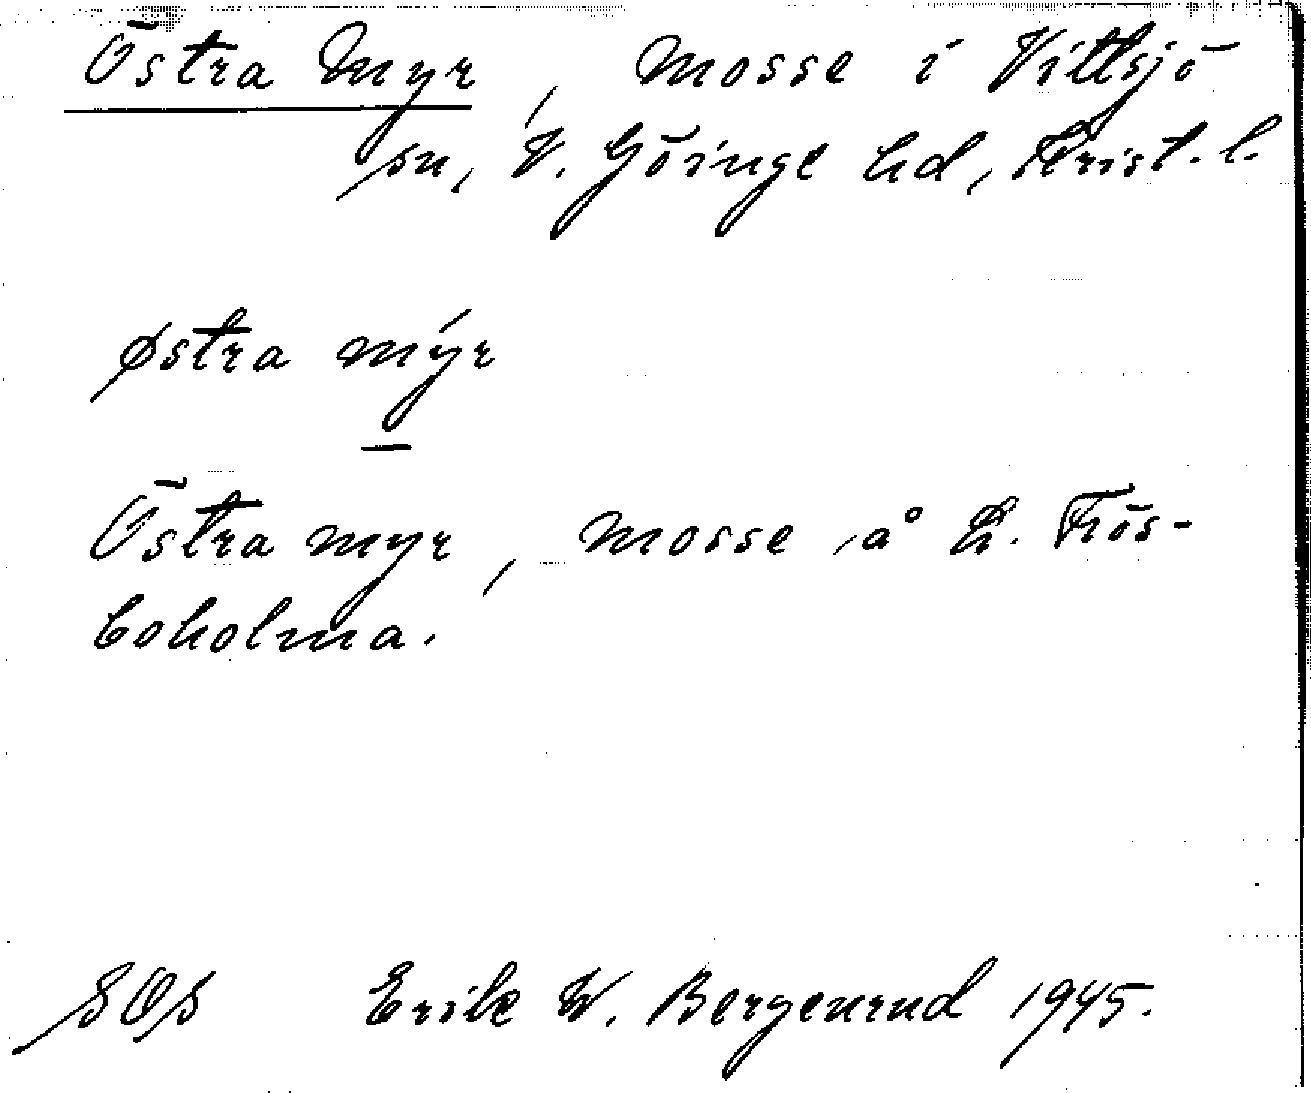 Östra Myr, mosse i Vittsjö
sn, V. Göinge hd, Krist. l.
østra mýr
Östra myr, mosse å L. Frös-
boholma.
SOS Erik W. Bergenrud 1945.